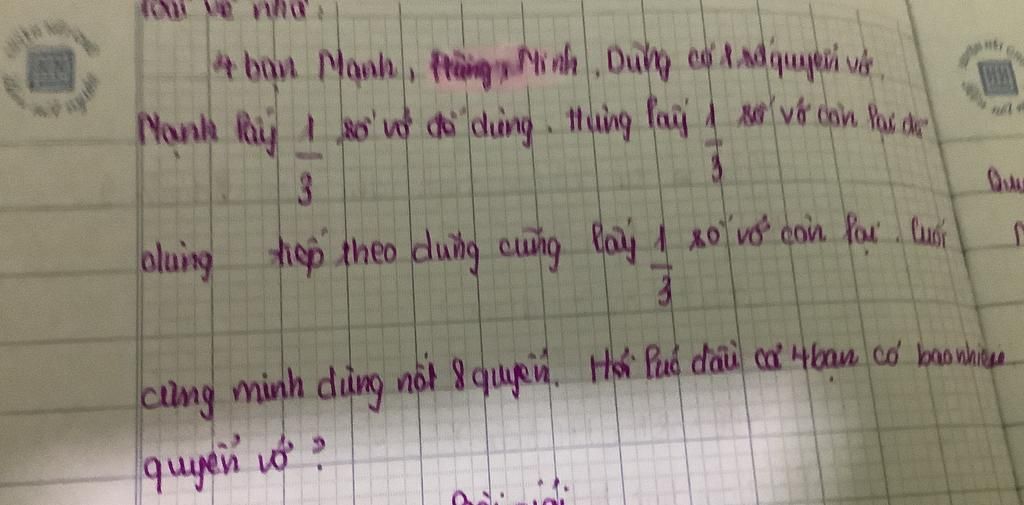 về nhà.
4 bạn Mạnh, Hùng, Minh, Dũng có 1 số quyển vở.
Mạnh lấy 1/3 số vở để dùng. Hùng lấy 1/3 số vở còn lại để
dùng tiếp theo dũng cũng lấy 1/3 số vở còn lại. Cuối
cùng minh dùng nốt 8 quyển. Hỏi lúc đầu cả 4 bạn có bao nhiêu
quyển vở?